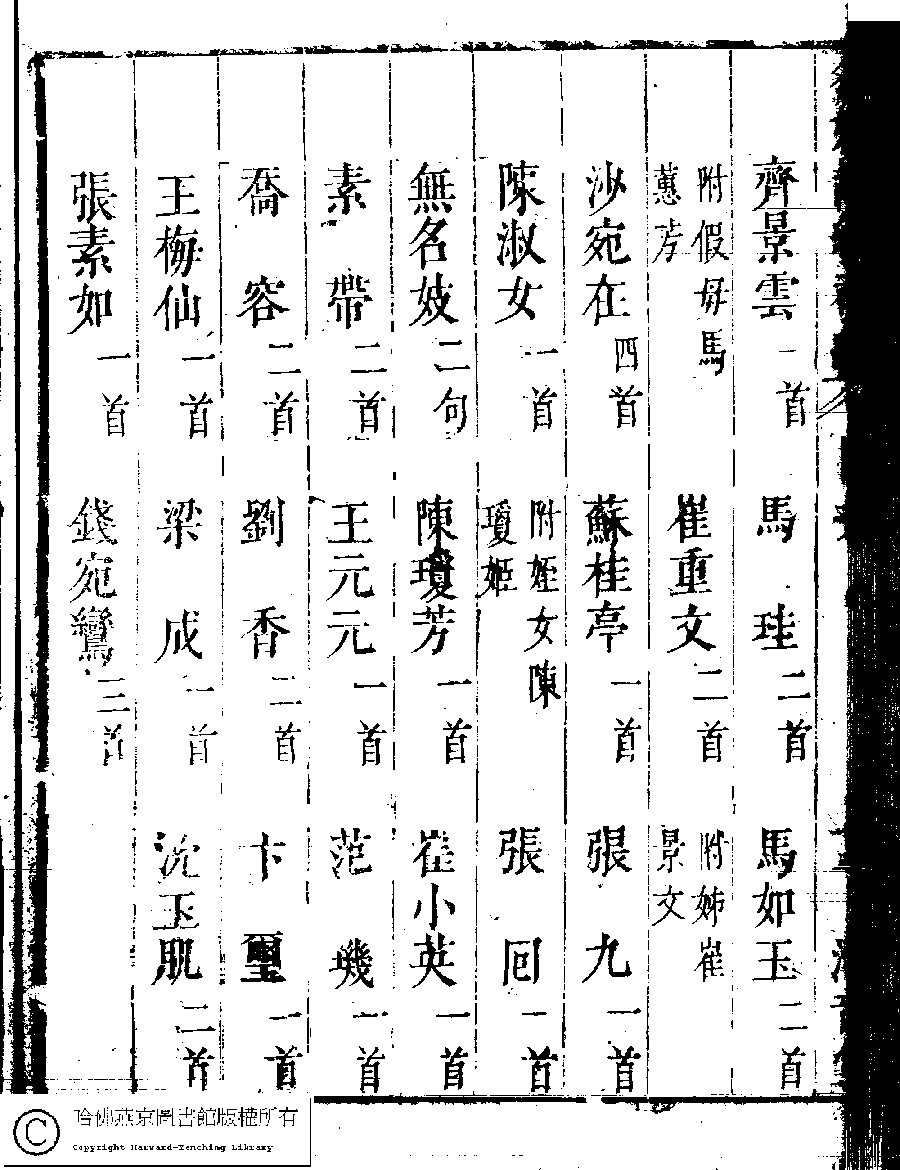 齊景雲一首 馬珪二首 馬如玉二首
附假母馬蕙芳 崔重文二首 附姊崔景文
沙宛在四首 蘇桂亭一首 張九一首
陳淑女一首 附姪女陳瓊姬 張回一首
無名妓二句 陳瓊芳一首 崔小英一首
素帶二首 王元元一首 范璣一首
喬容二首 劉香二首 卞璽一首
王梅仙一首 梁成一首 沈玉肌二首
張素如一首 錢宛鸞三首
哈佛燕京圖書館版權所有
Copyright Harvard-Yenching Library